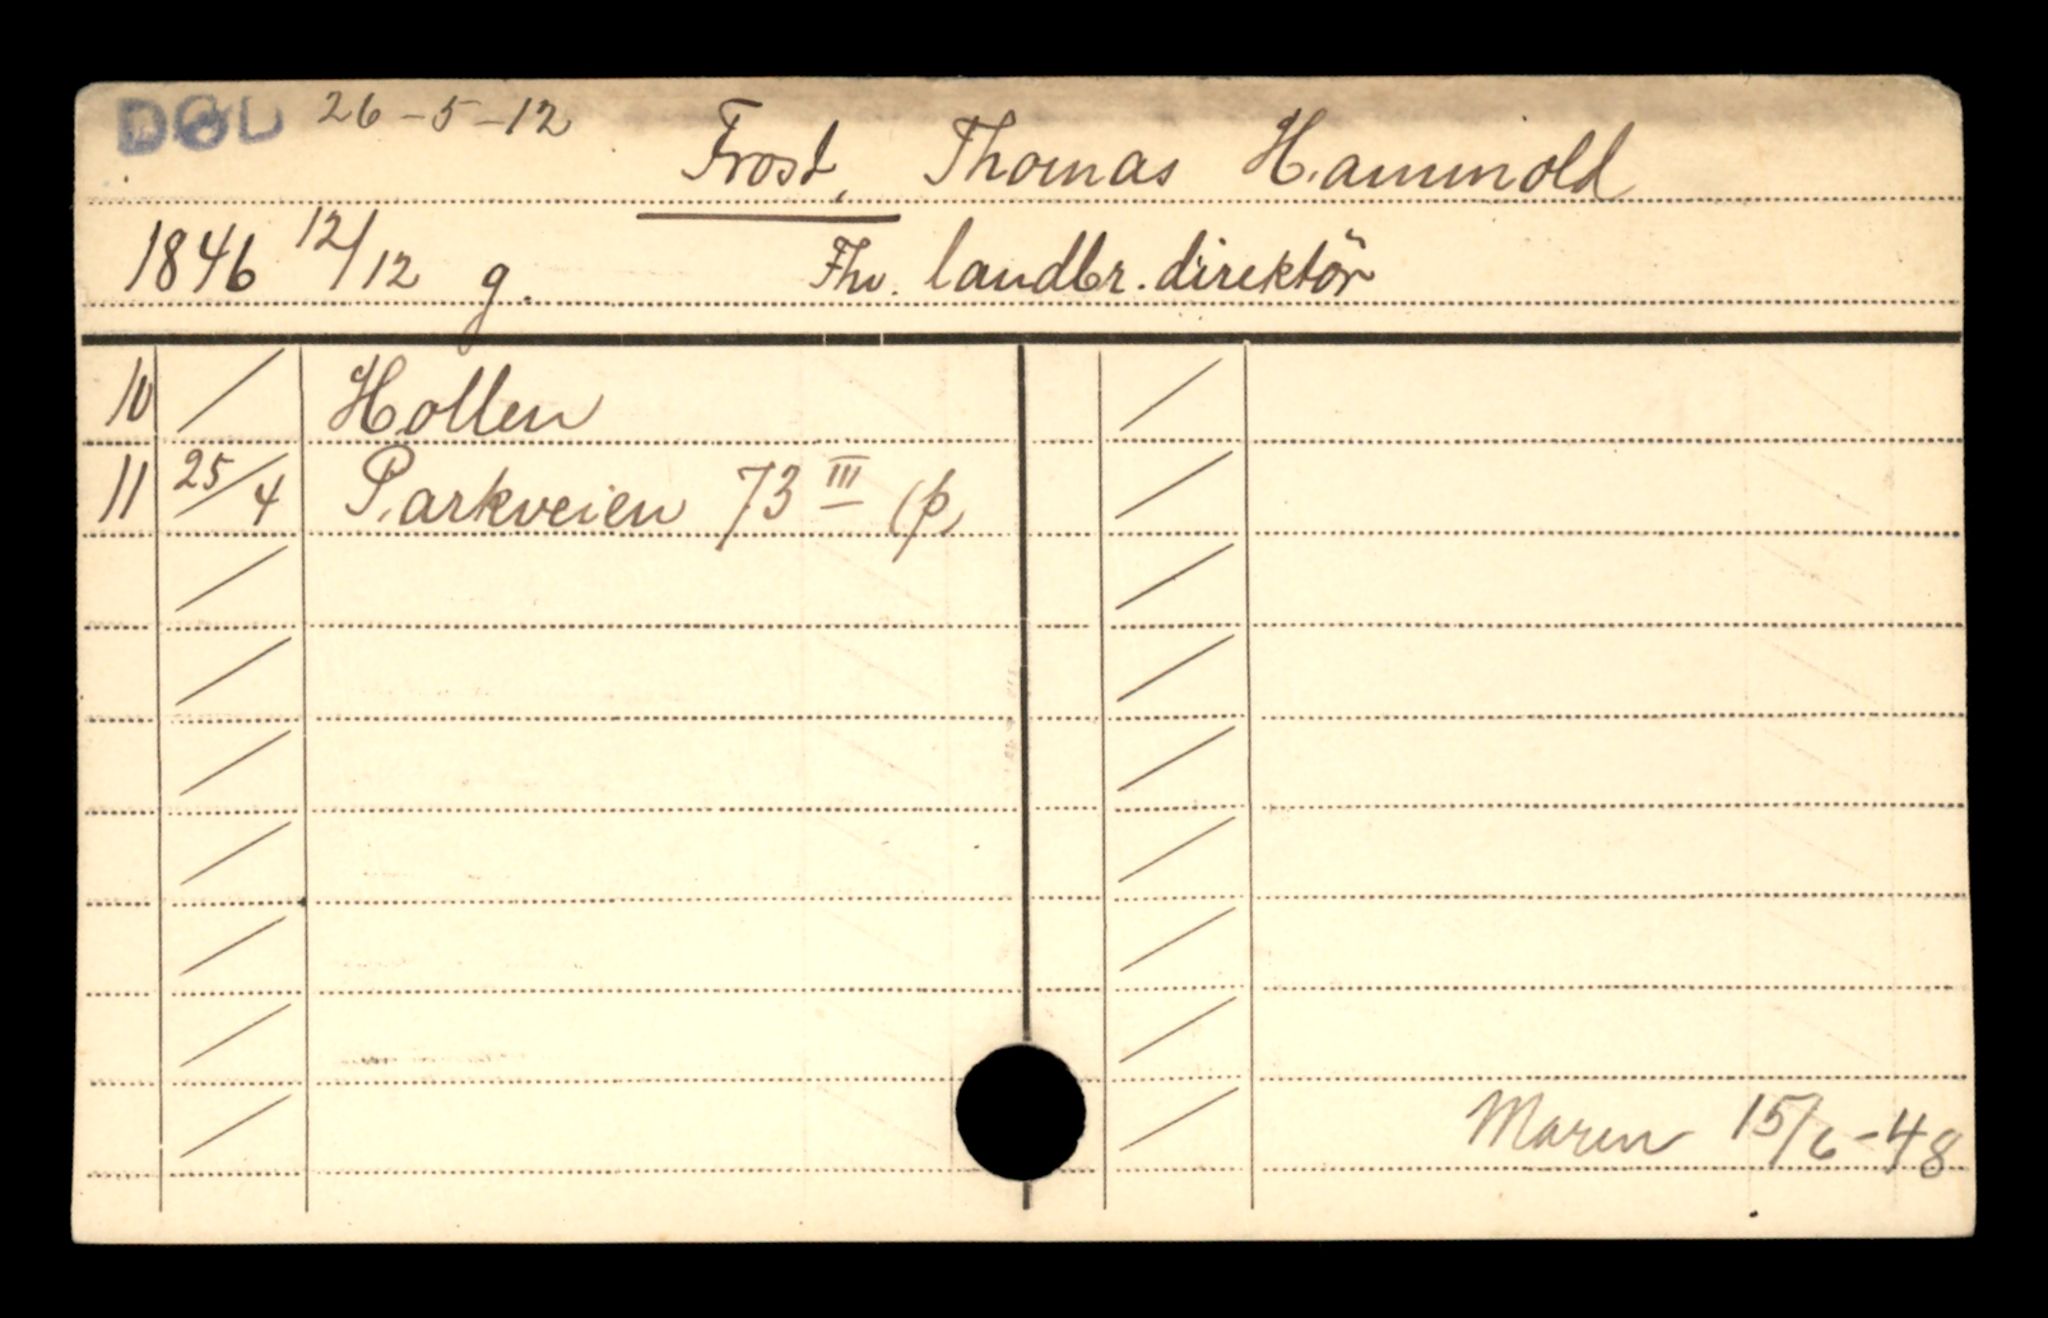 DØD 26-5-12
Frost, Thomas Hammold
1846 12/12 g. Fhv. landbr. direktör
10 / Hollen
11 25/4 Parkveien 73 III (p)
Maren 15/6-48